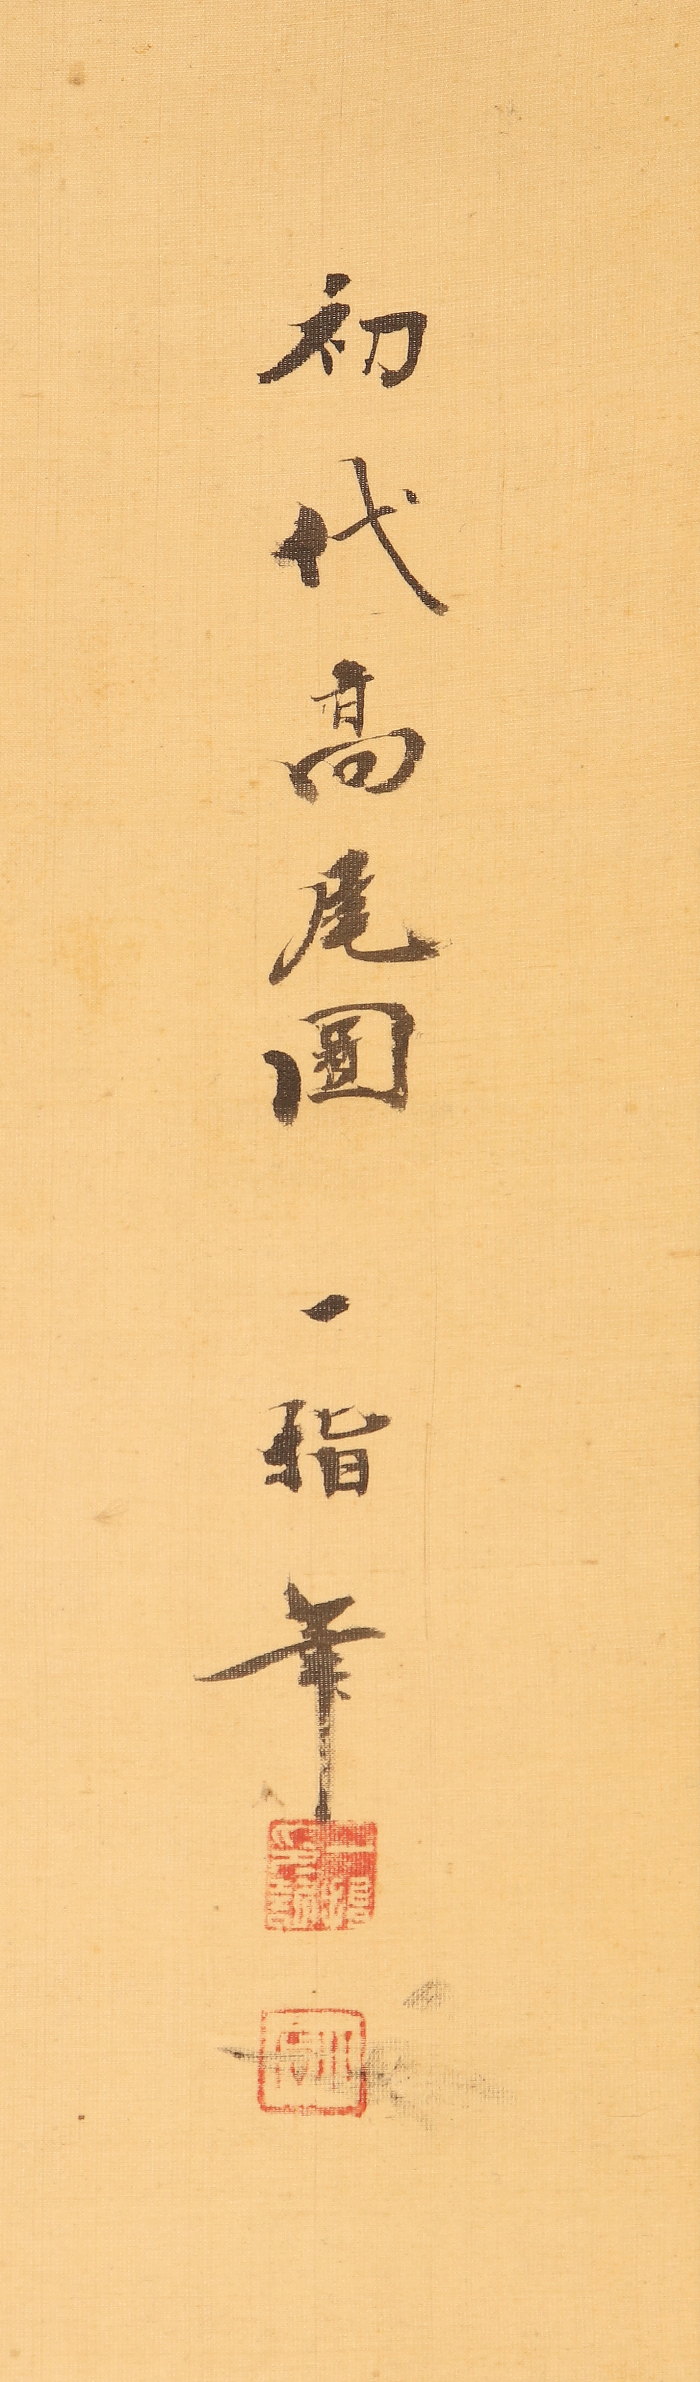 初代高尾圖 一指筆